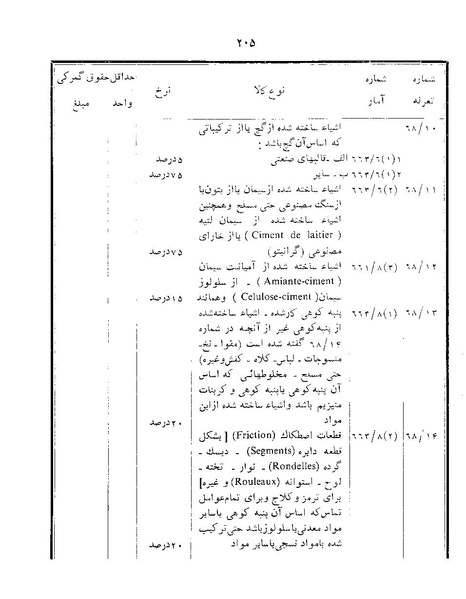 ۲۰۵
شماره تعرفه	شماره آمار	نوع کالا	نرخ	حداقل حقوق گمرکی واحد مبلغ
۶۸/۱۰	اشیاء ساخته شده از گچ یا از ترکیباتی
که اساس آن گچ باشد :
۶۶۳/۶(۱)۱ الف - قالبهای صنعتی	۵ درصد
۶۶۳/۶(۱)۲ ب - سایر	۷۵ درصد
۶۸/۱۱	۶۶۳/۶(۲)	اشیاء ساخته شده از سیمان یا از بتون یا
از سنگ مصنوعی حتی مسلح و همچنین
اشیاء ساخته شده از سیمان لتیه
(Ciment de laitier) یا از خارای
مصنوعی (گرانیتو)	۷۵ درصد
۶۸/۱۲	۶۶۱/۸(۳)	اشیاء ساخته شده از آمیانت سیمان
(Amiante-ciment) - از سلولوز
سیمان (Celulose-ciment) و همانند	۱۵ درصد
۶۸/۱۳	۶۶۳/۸(۱)	پنبه کوهی کار شده - اشیاء ساخته شده
از پنبه کوهی غیر از آنچه در شماره
۶۸/۱۴ گفته شده است (مقوا - نخ -
منسوجات - لباس - کلاه - کفش و غیره)
حتی مسلح - مخلوطهائی که اساس
آن پنبه کوهی یا پنبه کوهی و کربنات
منیزیم باشد و اشیاء ساخته شده از این
مواد	۲۰ درصد
۶۸/۱۴	۶۶۳/۸(۲)	قطعات اصطکاک (Friction) [بشکل
قطعه دایره (Segments) - دیسک -
گرده (Rondelles) - نوار - تخته -
لوح - استوانه (Rouleaux) و غیره]
برای ترمز و کلاج و برای تمام عوامل
تماس که اساس آن پنبه کوهی یا سایر
مواد معدنی یا سلولوز باشد حتی ترکیب
شده با مواد نسجی یا سایر مواد	۲۰ درصد